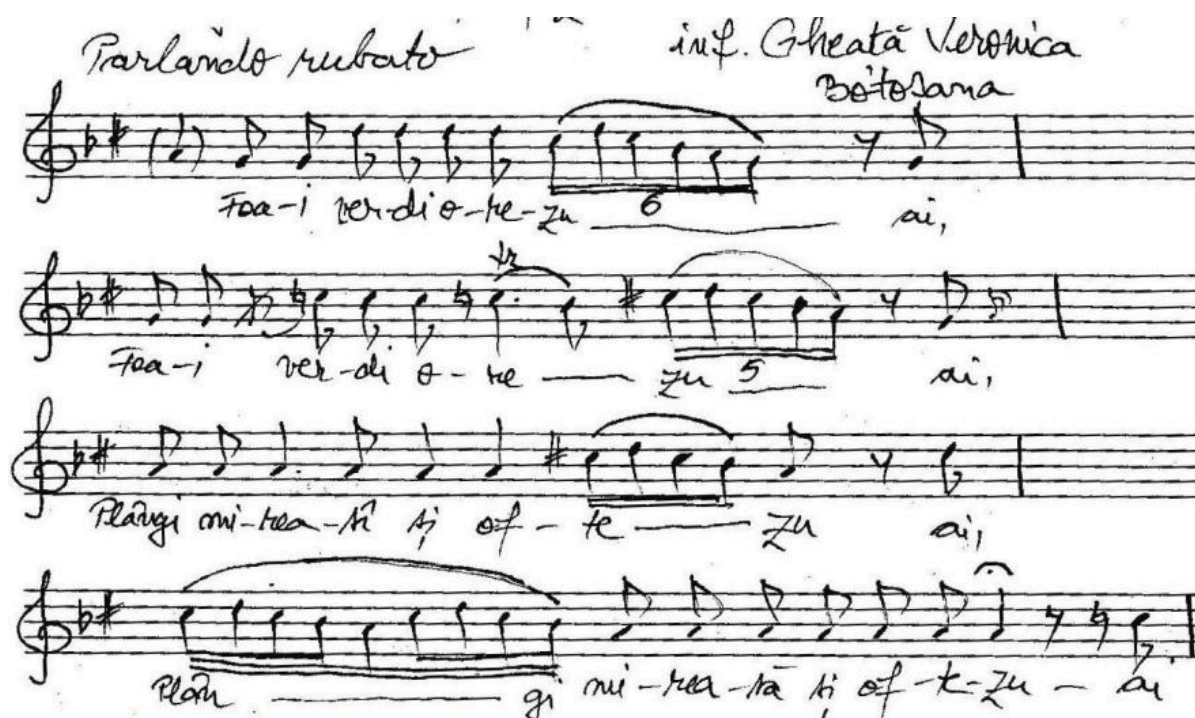 Parlando rubato
inf. Gheată Veronica
Botoşana
Foa-i ver-di o-re-zu 6 ai,
tr
Foa-i ver-di o-re — zu 5 ai,
Plângi mi-rea-să şi of-te — zu ai,
Plân — gi mi-rea-să şi of-te-zu — ai